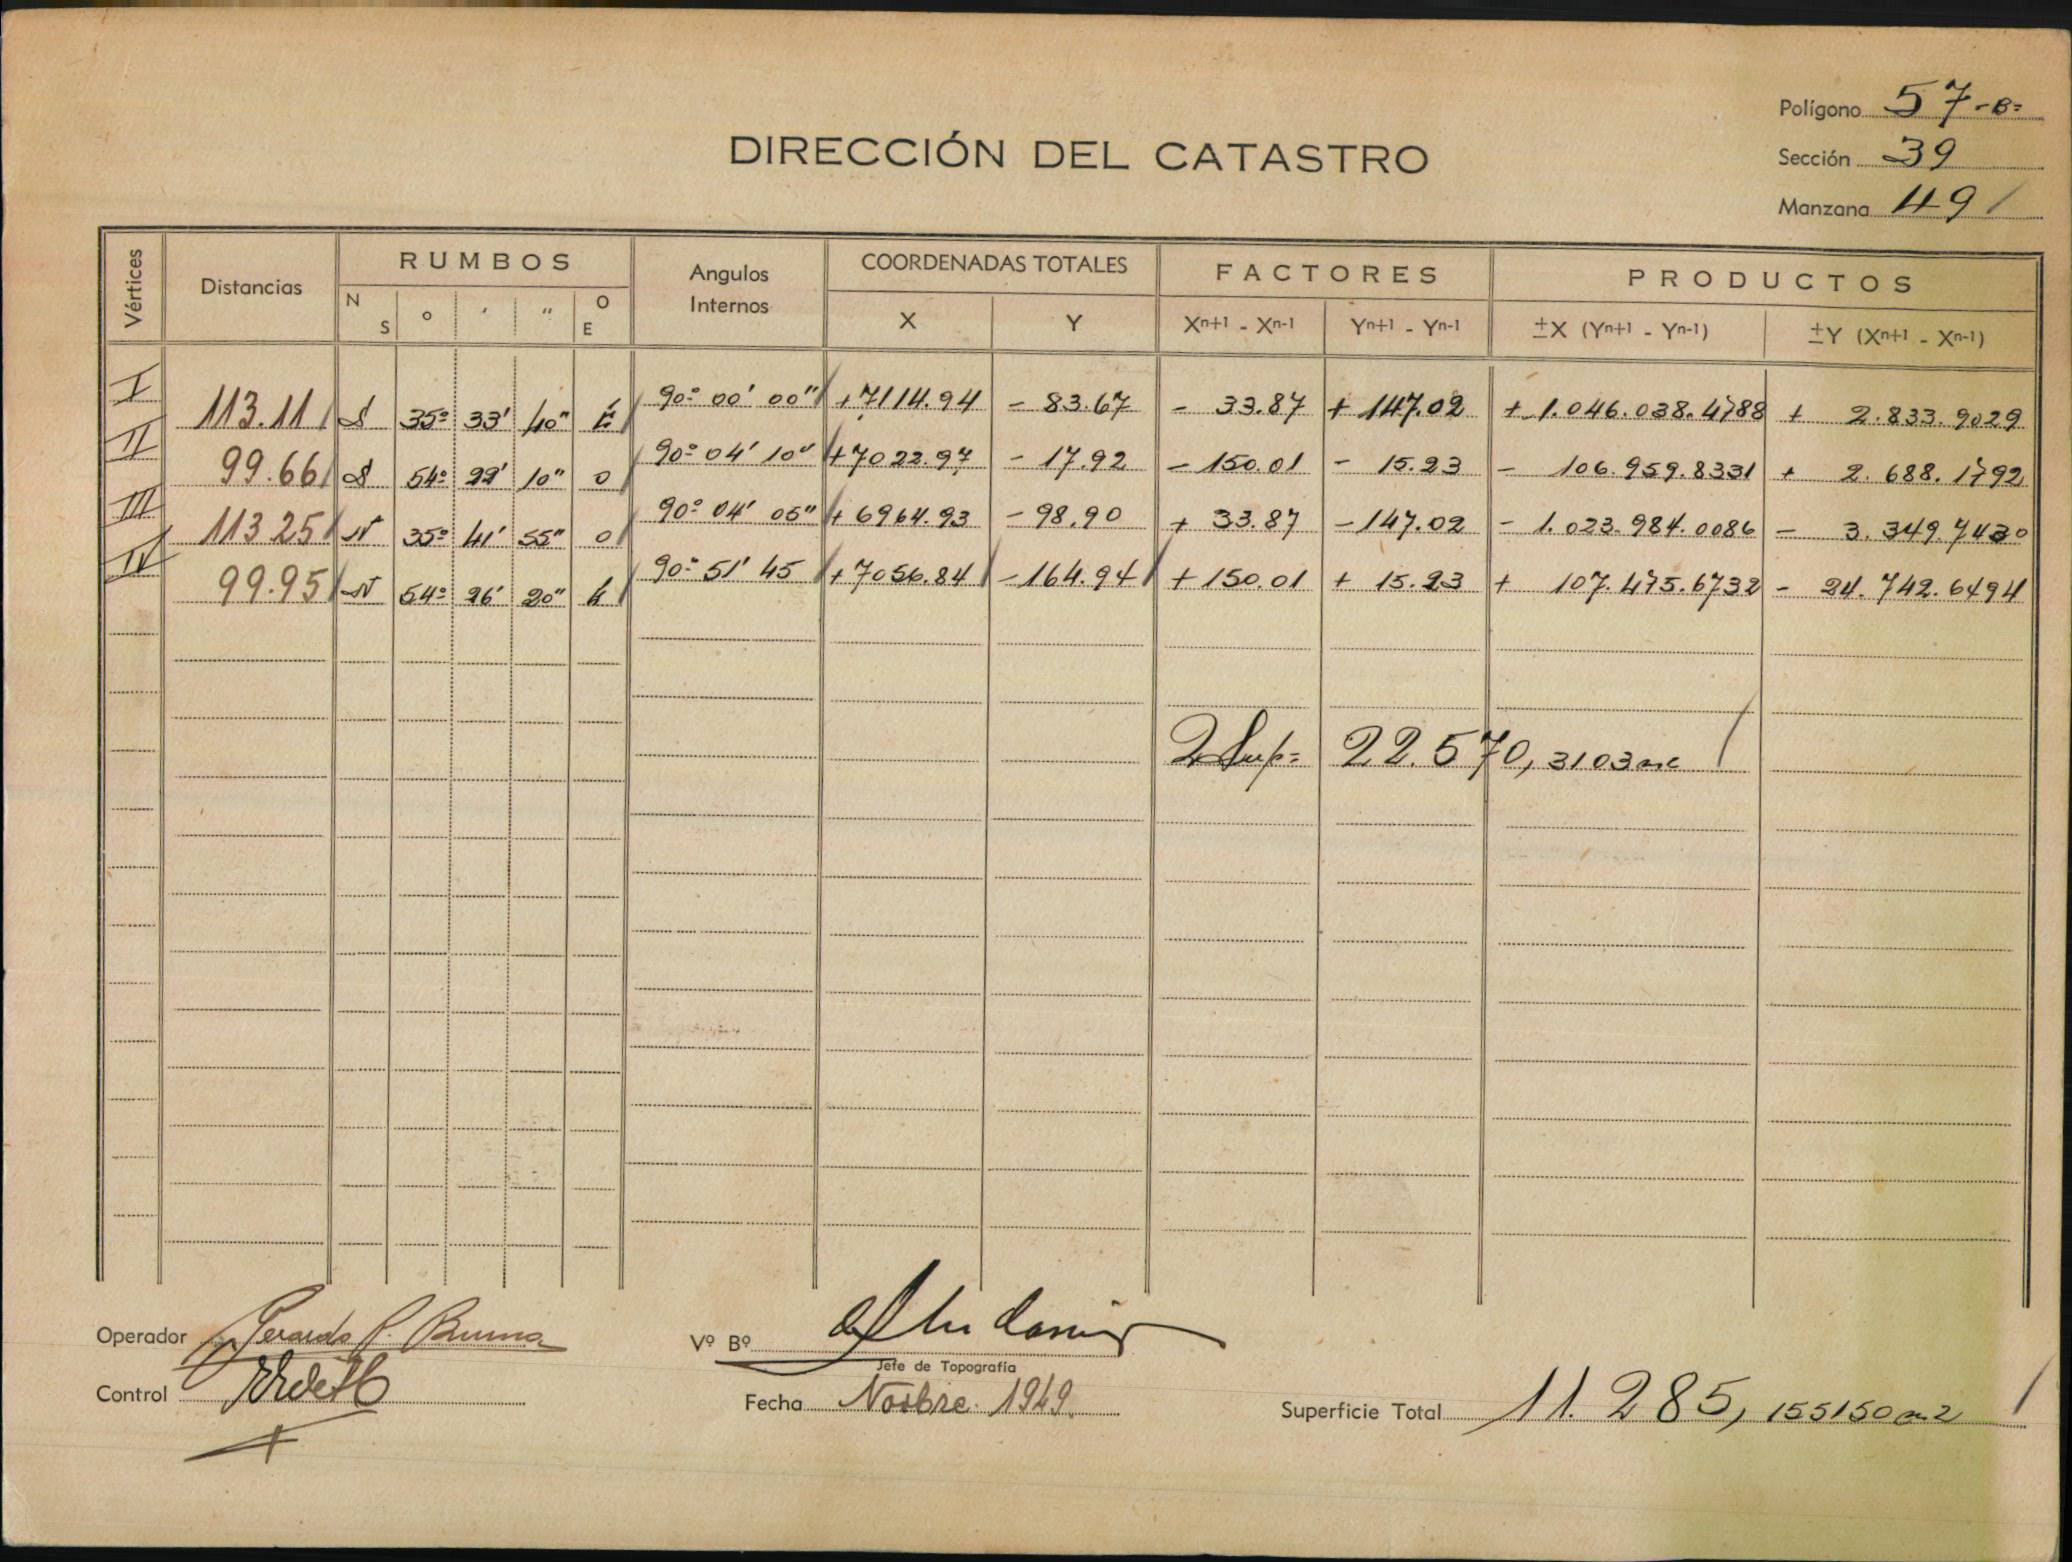 Polígono 57-B=
DIRECCIÓN DEL CATASTRO
Sección 39
Manzana 49
Vértices Distancias RUMBOS Angulos Internos COORDENADAS TOTALES FACTORES PRODUCTOS
N S ° ' " O E X Y Xn+1 - Xn-1 Yn+1 - Yn-1 ±X (Yn+1 - Yn-1) ±Y (Xn+1 - Xn-1)
I 113.11 S 35° 33' 40" E 90° 00' 00" +7114.94 - 83.67 - 33.87 + 147.02 + 1.046.038.4788 + 2.833.9029
II 99.66 S 54° 22' 10" O 90° 04' 10" +7022.97 - 17.92 - 150.01 - 15.23 - 106.959.8331 + 2.688.1792
III 113.25 N 35° 41' 55" O 90° 04' 05" + 6964.93 - 98.90 + 33.87 - 147.02 - 1.023.984.0086 - 3.349.7430
IV 99.95 N 54° 26' 20" E 90° 51' 45 +7056.84 -164.94 + 150.01 + 15.23 + 107.475.6732 - 24.742.6494
2 Sup= 22.570,3103
Operador Gerardo P.
Vº Bº
Jefe de Topografía
Control
Fecha Novbre. 1949.
Superficie Total 11.285,155150 m2